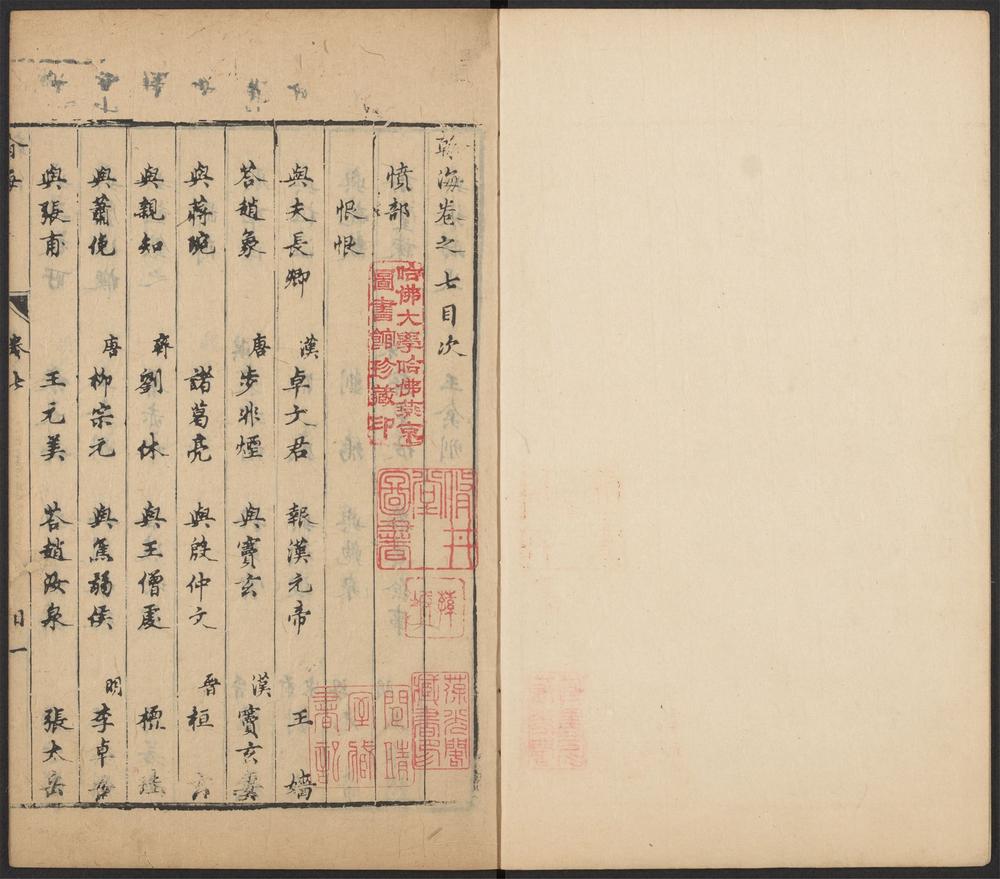 翰海卷之七目次
憤部
恨恨
與夫長卿 漢卓文君 報漢元帝 王嬙
荅趙象 唐步非煙 與竇玄 漢竇玄妻
與蔣琬 諸葛亮 與殷仲文 晉桓玄
與親知 齊劉休 與王僧虔 檀珪
與蕭俛 唐柳宗元 與焦弱侯 明李卓吾
與張甫 王元美 荅趙汝泉 張太岳
卷七
目一
哈佛大學哈佛燕京
圖書館珍藏印
堂
圖書
葆光閣
藏書印